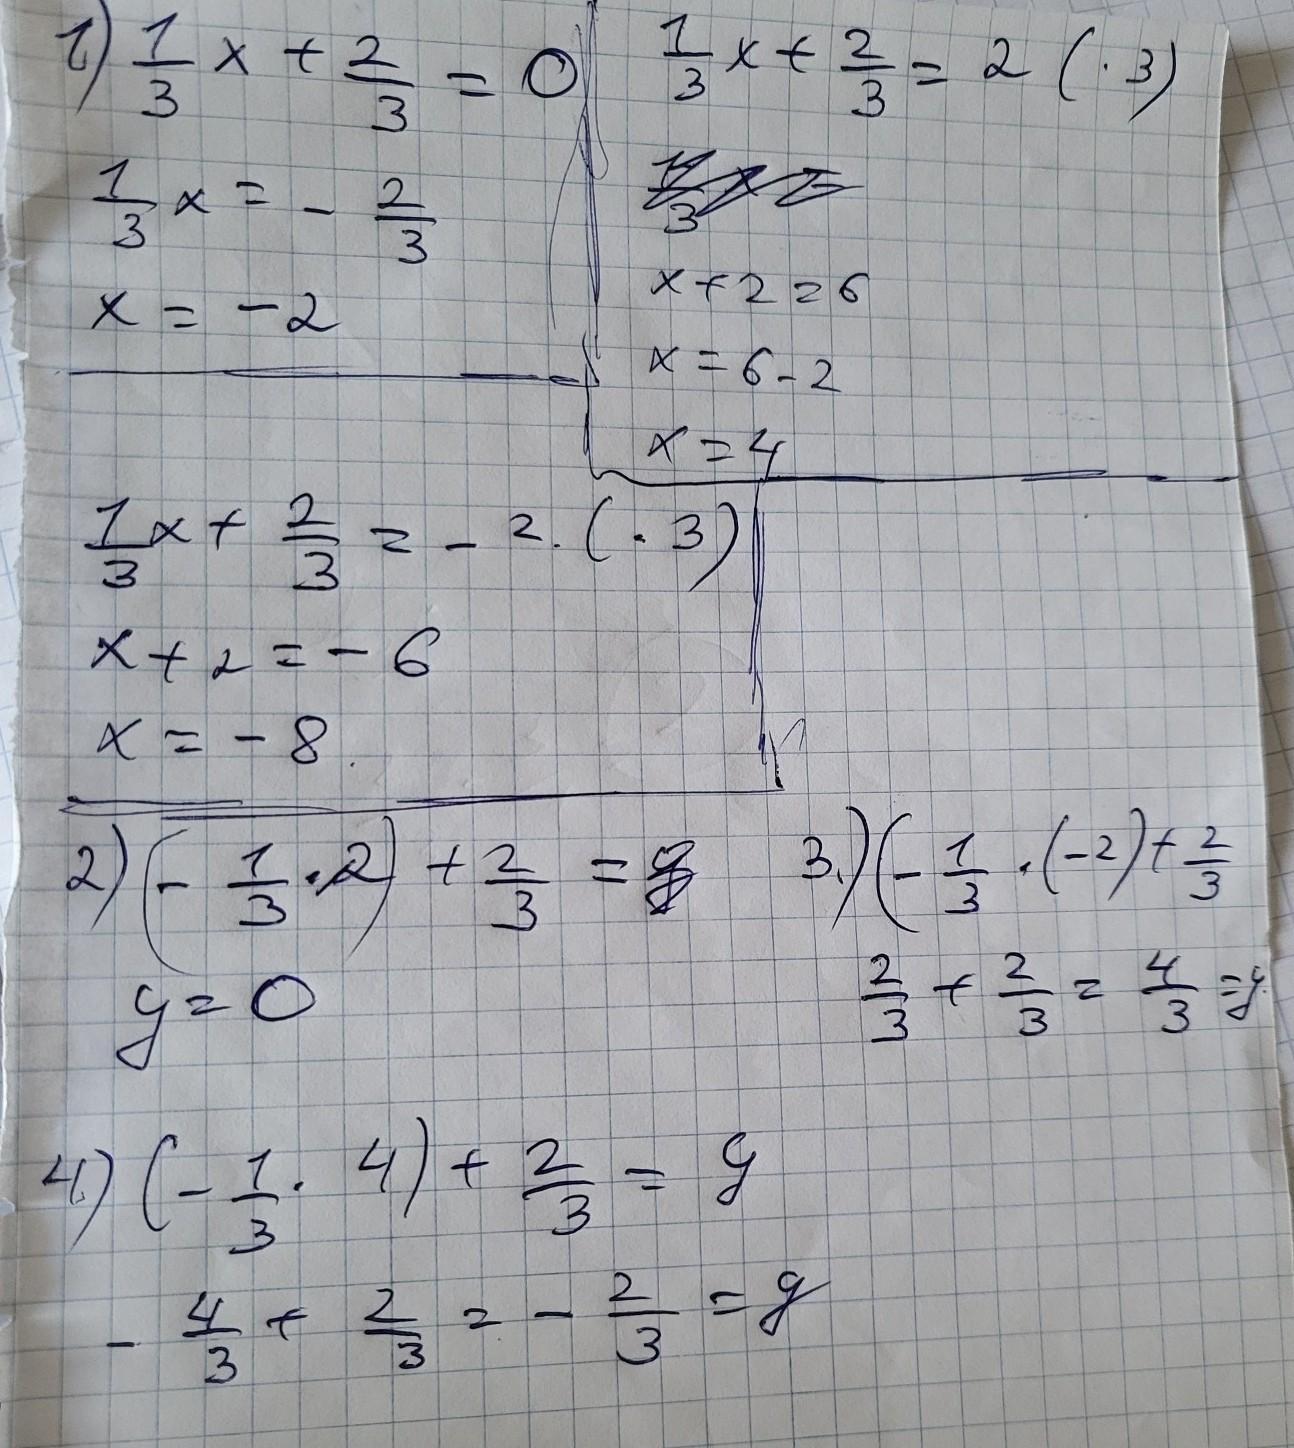 1) 1/3 x + 2/3 = 0
1/3 x = - 2/3
x = -2
1/3 x + 2/3 = 2 (· 3)
x + 2 = 6
x = 6 - 2
x = 4
1/3 x + 2/3 = - 2. (· 3)
x + 2 = - 6
x = - 8.
2) (- 1/3 · 2) + 2/3 = y
y = 0
3.) (- 1/3 · (-2) + 2/3
2/3 + 2/3 = 4/3 = y.
4.) (- 1/3 · 4) + 2/3 = y
- 4/3 + 2/3 = - 2/3 = y